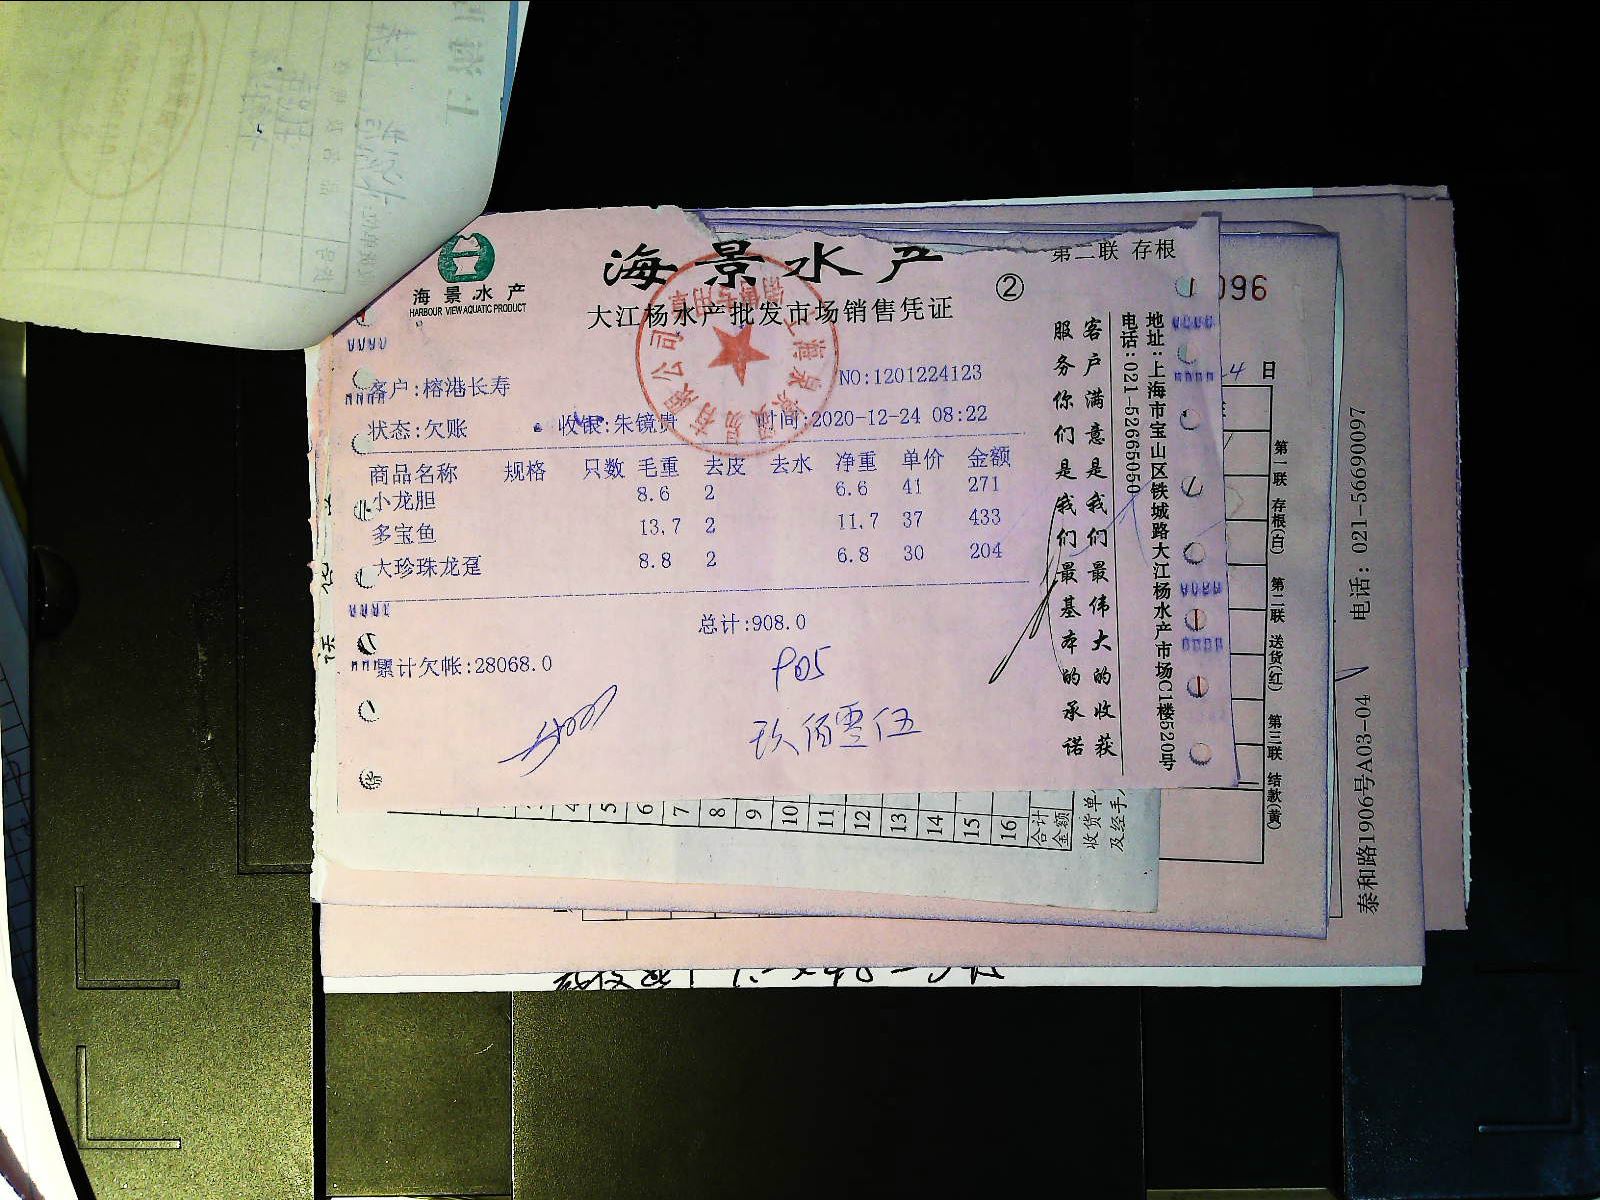 海景水产
HARBOUR VIEW AQUATIC PRODUCT
海景水产
大江杨水产批发市场销售凭证
②
第二联 存根
096
客户:榕港长寿
NO:1201224123
状态:欠账
收银:朱镜贵
时间:2020-12-24 08:22
商品名称 规格 只数 毛重 去皮 去水 净重 单价 金额
小龙胆 8.6 2 6.6 41 271
多宝鱼 13.7 2 11.7 37 433
大珍珠龙趸 8.8 2 6.8 30 204
总计:908.0
累计欠帐:28068.0
905
玖佰零伍
客户满意是我们最伟大的收获
服务你们是我们最基本的承诺
地址:上海市宝山区铁城路大江杨水产市场C1楼520号
电话:021-52665050
4 日
第一联 存根(白) 第二联 送货(红) 第三联 结款(黄)
泰和路1906号A03-04 电话: 021-56690097
4 5 6 7 8 9 10 11 12 13 14 15 16
合计
金额
收货单
及经手